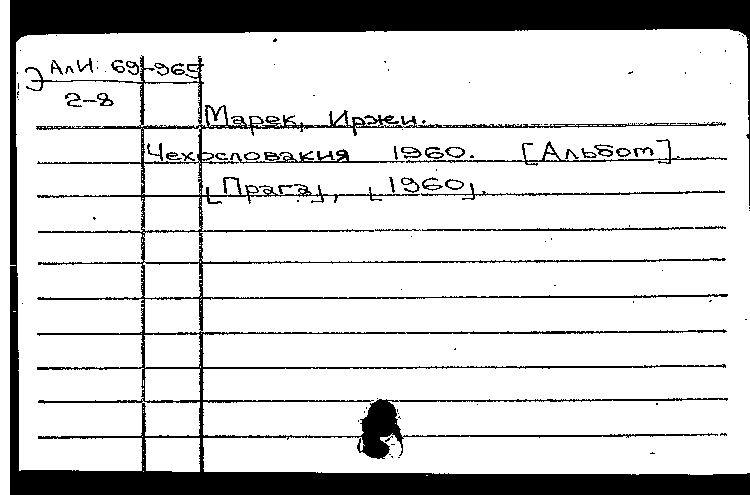 Э АлИ: 69-965
2-8
Марек, Иржи.
Чехословакия 1960. [Альбом].
[Прага], [1960].